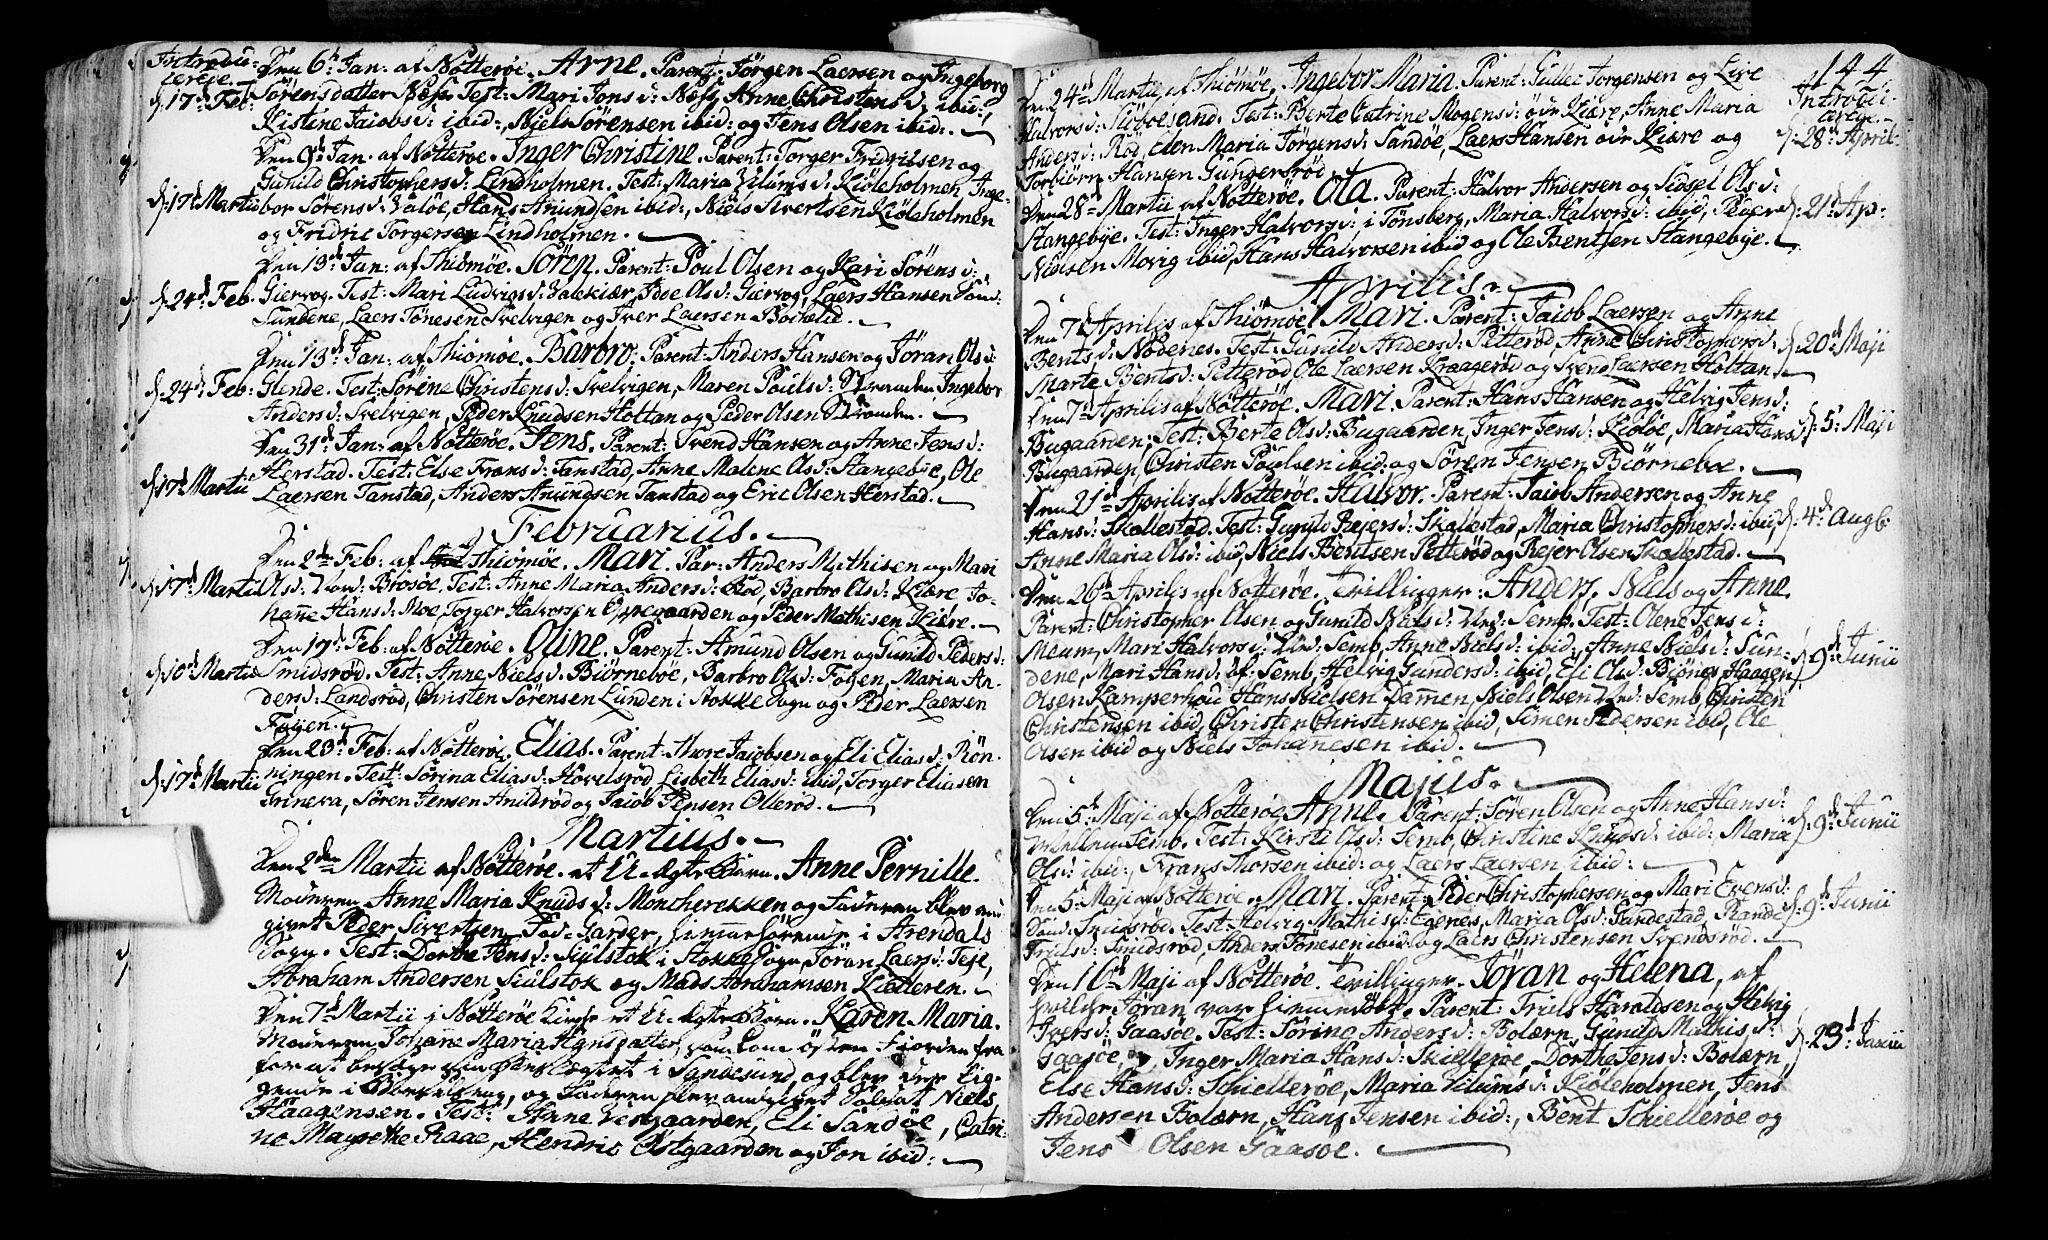 Introdu-
cerede.
Den 6te Jan: af Nötteröe. Arne. Parent: Jörgen Laersen og Ingeborg
d: 17de Feb: Sörensdatter Næs. Test: Mari Jons d: Næs, Anne Christens d: ibid:,
Kistine Jacobs d: ibid:, Niels Sörensen ibid: og Jens Olsen ibid:
Den 6te Jan: af Nötteröe. Inger Christine. Parent: Torger Fridrilsen og
Gunild Christophers d: Lindholmen. Test: Maria Vilums d: Kiöleholmen, Inge-
d: 17de Martii bor Sörens d: Valöe, Hans Amundsen ibid:, Niels Sivertsen Kiöleholmen
og Fridric Torgersen Lindholmen.
Den 13de Jan: af Thiömöe. Sören. Parent: Poul Olsen og Kari Sörens d:
d: 24de Feb: Giervog. Test: Mari Ludvigs d: Valekiær, Idoe Ols d: Giervog, Laers Hansen Sönd:
Sundene, Laers Tönesen Svelvigen og Iver Laersen Boraelie.
Den 13de Jan: af Thiömöe. Barbro. Parent: Anders Hansen og Jöran Ols d:
d: 24de Feb: Glende. Test: Sörine Christens d: Svelvigen, Maren Pouls d: Stranden, Ingebor
Anders d: Svelvigen, Peder Knudsen Holtan og Peder Olsen Stranden.
Den 31de Jan: af Nötteröe. Jens. Parent: Svend Hansen og Anne Jens d:
d: 17de Martii Herstad. Test: Else Frans d: Tanstad, Anne Malene Ols d: Stangebie, Ole
Laersen Tanstad, Anders Anundsen Tanstad og Eric Olsen Herstad.
Februarius.
Den 2den Feb: af Thiömöe. Mari. Par: Anders Mathisen og Mari
d: 17de Martii Ols d: Brosöe. Test: Anne Maria Anders d: Rod, Barbro Ols d: Kiære, Jo-
hanne Hans d: Moe, Torger Halvorsen Opregaarden og Peder Mathisen Kiære.
Den 17de Feb: af Nötteröe. Oline. Parent: Amund Olsen og Gunild Peders d:
d: 10de Martii Smidsröd. Test: Anne Niels d: Biörneböe, Barbro Ols d: Föyen, Maria An-
ders d: Landsröd, Christen Sörensen Lunden i Stokke Sogn og Peder Laersen
Föyen.
Den 23de Feb: af Nötteröe. Elias. Parent: Thore Jacobsen og Eli Elias d: Rön-
d: 17de Martii ningen. Test: Sörina Elias d: Hovelsröd, Lisbeth Elias d: ibid, Torger Eliasen
Trineva, Sören Jensen Anildröd og Jacob Jensen Olleröd.
Martius.
Den 2den Martii af Nötteröe. et U-ægte Barn. Anne Pernille.
Moderen Anne Maria Knuds d: Moncherekken og Faderen blev an-
givet Peder Sivertsen, hiemehörende i Arendals
Sogn. Test: Dorthe Jens d: Siulstok i Stokke Sogn, Jöran Laers d: Teje,
Abraham Andersen Siulstok og Mads Abrahamsen Kietteren.
Den 7de Martii i Nötteröe Kirke et U-ægte Barn. Karen Maria.
Moderen Johane Maria Hansdatter, som kom östen Fiorden fra
for at besöge sin i Sandesund, og blev der lig-
gende i, og Faderen blev angivet Soldat Niels
Haagensen. Test: Anne Vestgaarden, Eli Sandöe, Catri-
ne Magrethe Raae, Hendric Ostgaarden og Jon ibid:
144
Introdu-
cerede.
Den 24de Martii af Thiömöe. Ingebor Maria. Parent: Gullic Jörgensen og Live
Halvors d: Skiöbösand. Test: Berte Catrine Mogens d: övr Kiære, Anne Maria
Anders d: Rod, Elen Maria Jörgens d: Sandöe, Laers Hansen övr Kiære og d: 28de April:
Torbiörn Hansen Gundersröd.
Den 28de Martii af Nötteröe. Ola. Parent: Halvor Andersen og Sidsel Ols d:
Stangebye. Test: Inger Halvors d: i Tönsberg, Maria Halvors d: ibid, Peder d: 21de Apr:
Nielsen Movig ibid, Hans Halvorsen ibid og Ole Bentsen Stangebye.
Aprilis.
Den 7de Aprilis af Thiömöe. Mari. Parent: Jacob Laersen og Anne
Bents d: Nodenes. Test: Gunild Anders d: Petteröd, Anne Christophers d: d: 20de Maji
Marte Bents d: Petteröd, Ole Laersen Kraageröd og Svend Laersen Holtan.
Den 7de Aprilis af Nötteröe. Mari. Parent: Hans Hansen og Helvig Jens d:
Bugaarden. Test: Berte Ols d: Bugaarden, Inger Jens d: Kiölöe, Maria Hans d: d: 5: Maji
Bugaarden, Christen Poulsen ibid: og Sören Jensen Biörneboe.
Den 21de Aprilis af Nötteröe. Halvor. Parent: Jacob Andersen og Anne
Hans d: Skallestad. Test: Gunild Rejers d: Skallestad, Maria Christophers d: ibid, d: 4de Aug:
Anne Maria Ols d: ibid, Niels Bentsen Petteröd og Rejer Olsen Skallestad.
Den 26de Aprilis af Nötteröe. Tvillinger: Anders, Niels og Anne.
Parent: Christopher Olsen og Gunild Niels d: Semb. Test: Olene Jens d:
Meum, Mari Halvors d: Semb, Anne Niels d: ibid, Anne Niels d: Sun- d: 9de Junii
dene, Mari Hans d: Semb, Helvig Gunders d: ibid, Eli Ols d: Biönes, Haagen
Olsen Kamperhoug, Hans Nielsen Dammen, Niels Olsen Semb, Christen
Christensen ibid, Christen Christensen ibid, Simen Pedersen ibid, Ole
Olsen ibid og Niels Johanesen ibid.
Majus.
Den 5te Maji af Nötteröe. Anne. Parent: Sören Olsen og Anne Hans d:
Mellem Semb. Test: Kirsti Ols d: Semb, Christine Knuds d: ibid: Maria d: 9de Junii
Ols d: ibid:, Frans Thorsen ibid: og Laers Laersen ibid:
Den 5te Maji af Nötteröe. Mari. Parent: Peder Christophersen og Mari Evens d:
Smidsröd. Test: Helvig Mathis d: Egenes, Maria Ols d: Tandestad, Rande d: 9de Junii
Friils d: Smidsröd, Anders Tönesen ibid: og Laers Christensen Svendsröd.
Den 16de Maji af Nötteröe. Tvillinger. Jöran og Helena, af
hvilke Jöran var hiemedöbt. Parent: Friils Haraldsen og Helvig
Ivers d: Gaasöe. Test: Sörine Anders d: Bolærn, Gunild Mathis d: d: 23de Junii
Gaasöe, Inger Maria Hans d: Skielleröe, Dorthe Jens d: Bolærn,
Else Hans d: Schielleröe, Maria Vilums d: Kiöleholmen, Jens
Andersen Bolærn, Hans Jensen ibid:, Bent Schielleröe og
Jens Olsen Gaasöe.